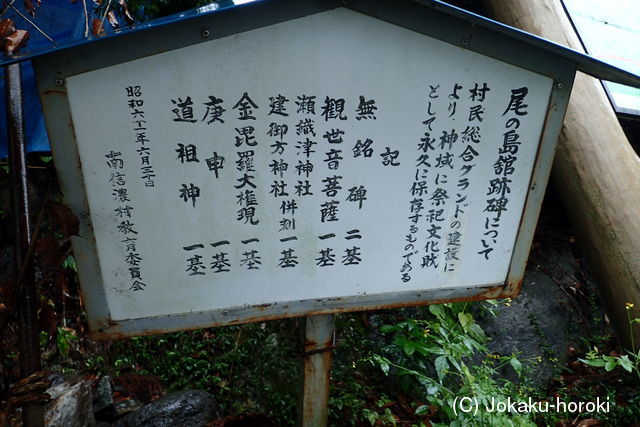 尾の島舘跡碑について
村民総合グランドの建設に
より、神域に祭祀文化財
として永久に保存するものである
記
無銘碑 二基
観世音菩薩 一基
瀬織津神社
建御方神社 併刻 一基
金毘羅大権現 一基
庚申 一基
道祖神 一基
昭和六十二年六月三十日
南信濃村教育委員会
(C)Jokaku-horoki